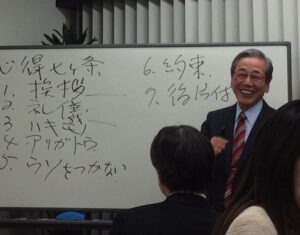 心得七ヶ条
1. 挨拶
2. 礼儀
3. ハキ
4. アリガトウ
5. ウソをつかない
6. 約束
7. 後片付